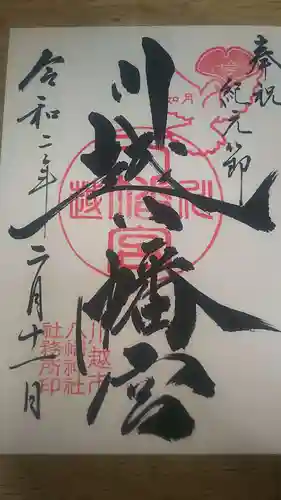 奉祝
紀元節
如月
川越八幡宮
川越市
八幡神社
社務所印
令和二年二月十一日